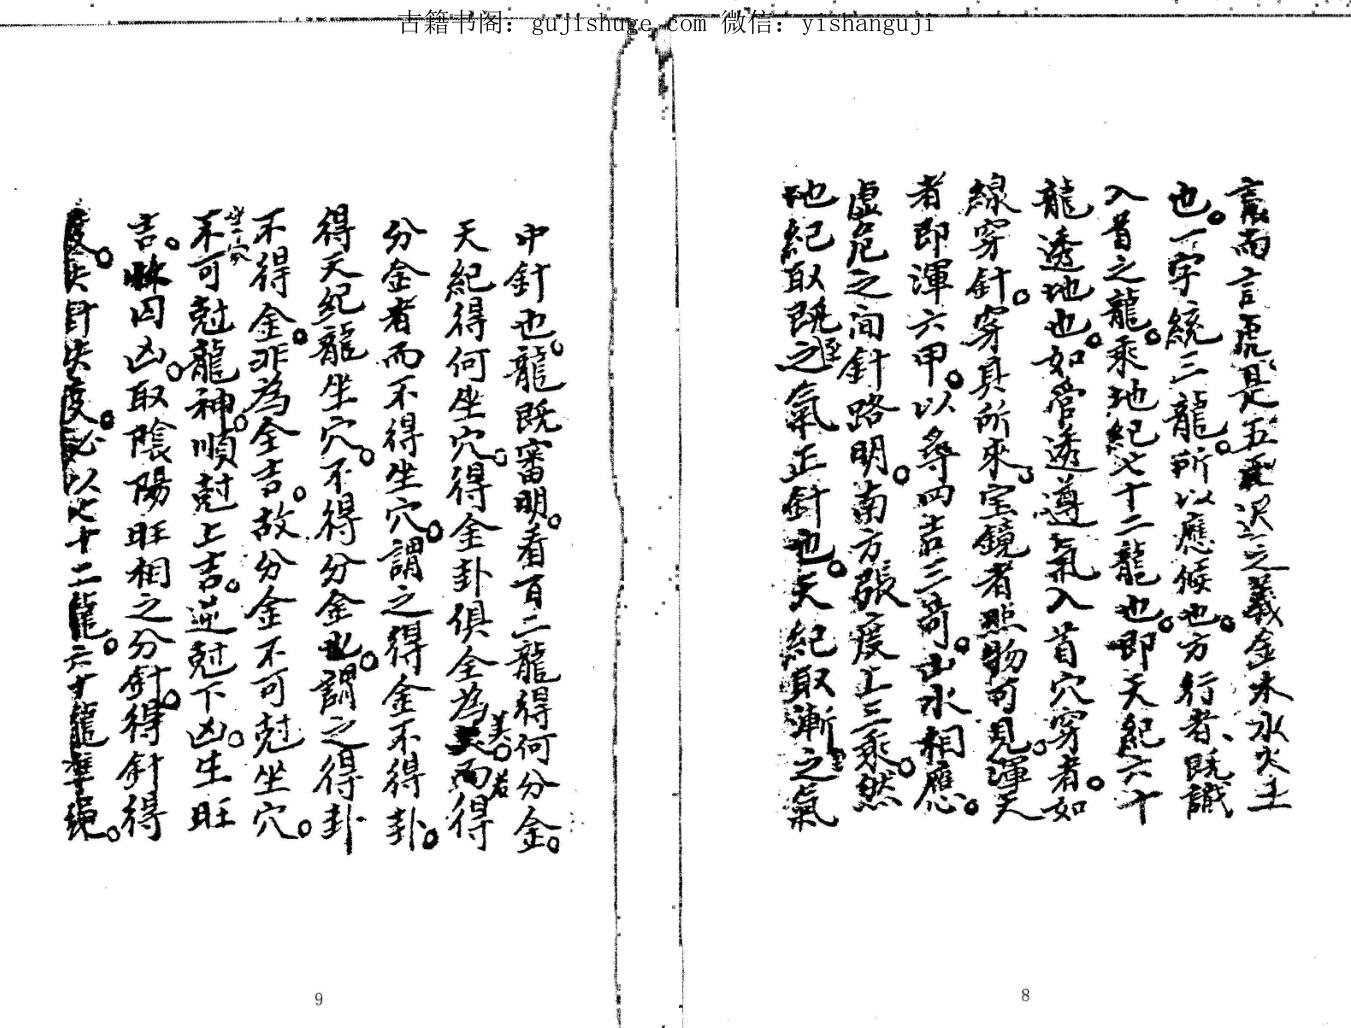 古籍书阁：gujishuge.com 微信：yishanguji
言而言虎。是五星泛之義金木水火土
也。一字統三龍。所以應候也。方行者、既識
入首之龍。乘地紀七十二龍也。即天紀六十
龍透地也。如管透遵氣入首穴穿者。如
線穿針。穿其所來。宝鏡者照物可見。渾天
者即渾六甲。以尋四吉三奇。山水相應。
虛危之间針路明。南方張度上三乘。然
地紀取既之氣正針也。天紀取漸之氣
8
中針也。龍既審明。看百二龍得何分金。
天紀得何坐穴。得金卦俱全為美。若得
分金者而不得坐穴。謂之得金不得卦。
得天纪龍坐穴。不得分金也。謂之得卦
不得金。非為全吉。故分金不可尅坐穴。
坐穴
不可尅龍神。順尅上吉。逆尅下凶。生旺
吉。休囚凶。取陰陽旺相之分針。得針得
度。失針失度。必以七十二龍。六十龍準繩。
9